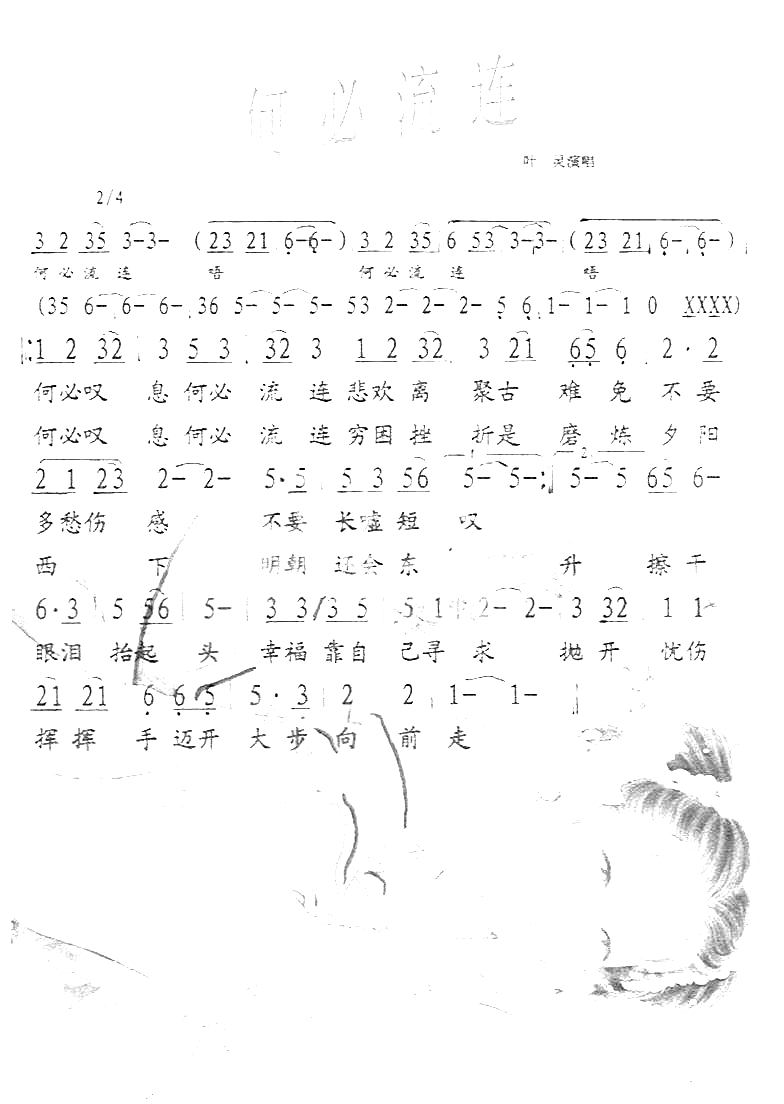 何必流连
叶 灵演唱
2/4
3 2 35 3-3- (23 21 6-6-) 3 2 35 6 53 3-3- (23 21 6-6-)
何必流连 唔 何必流连 唔
(35 6- 6- 6- 36 5- 5- 5- 53 2- 2- 2- 5 6 1- 1- 1 0 XXXX)
1 2 32 3 5 3 32 3 1 2 32 3 21 65 6 2· 2
何必叹 息何必 流 连悲欢离 聚古 难 免 不 要
何必叹 息何必 流 连穷困挫 折是 磨 炼 夕 阳
2 1 23 2- 2- 5·5 5 3 56 5- 5-: 5- 5 65 6-
1. 2.
多愁伤 感 不要 长嘘短 叹
西 下 明朝 还会东 升 擦干
6·3 5 56 5- 3 3 3 5 5 1 2- 2- 3 32 1 1-
眼泪 抬起 头 幸福 靠自 己寻 求 抛 开 忧伤
21 21 6 6 5 5· 3 2 2 1- 1-
挥 挥 手 迈开 大 步 向 前 走